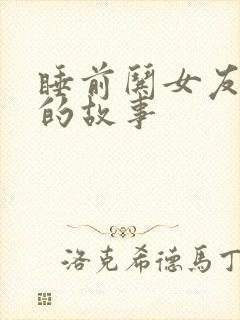 睡前鬨女友
的故事
洛克希德馬丁